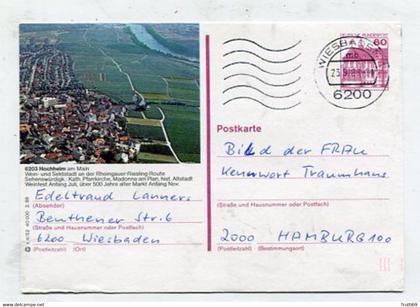 DEUTSCHE BUNDESPOST
60
WIESBADEN
mb
23.9.88
6200
Postkarte
6203 Hochheim am Main
Wein- und Sektstadt an der Rheingauer-Riesling-Route
Sehenswürdigk.: Kath. Pfarrkirche, Madonna am Plan, hist. Altstadt
Weinfest Anfang Juli, über 500 Jahre alter Markt Anfang Nov.
Edeltraud Lanners
(Absender)
Beuthener Str. 6
(Straße und Hausnummer oder Postfach)
6200 Wiesbaden
(Postleitzahl) (Ort)
Bild der FRAU
Kennwort Traumhaus
(Straße und Hausnummer oder Postfach)
2000 HAMBURG 100
(Postleitzahl) (Bestimmungsort)